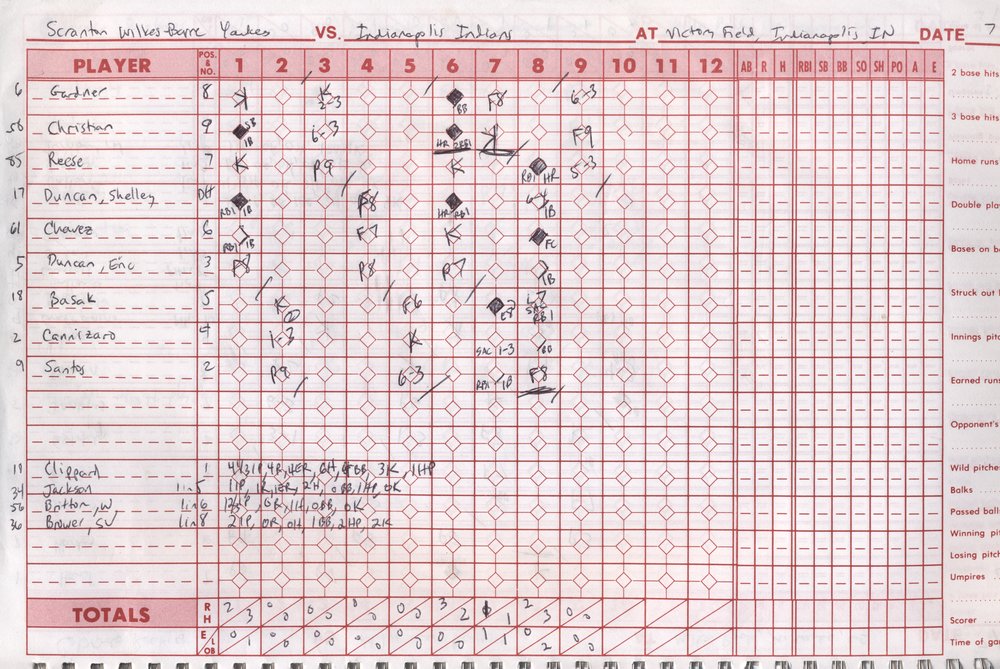 Scranton Wilkes-Barre Yankees VS. Indianapolis Indians AT Victory Field, Indianapolis, IN DATE 7
PLAYER POS. & NO. 1 2 3 4 5 6 7 8 9 10 11 12 AB R H RBI SB BB SO SH PO A E
6 Gardner 8 K K 2-3 BB F8 6-3
56 Christian 9 SB 1B 6-3 HR 2RBI K F9
85 Reese 7 K P9 K RBI HR 5-3
17 Duncan, Shelley DH RBI 1B F8 HR RBI 6-4 1B
61 Chavez 6 RBI 1B F7 K FC
5 Duncan, Eric 3 F8 P8 P7 1B
18 Basak 5 K F6 E8 SAC RBI
2 Cannizaro 4 1-3 K SAC 1-3 BB
9 Santos 2 P9 6-3 RBI 1B F8
19 Clippard 1 4R, 4ER, 6H, 3K, 1HP
34 Jackson 1 in 5 1IP, 1R, 1ER, 2H, 0BB, 1HP, 0K
56 Britton, W. 1 in 6 0R, 1H, 0BB, 0K
36 Brower, SV 1 in 8 2IP, 0R, 0H, 1BB, 2HP, 2K
TOTALS R H 2 3 0 0 0 0 0 0 0 0 3 2 1 1 2 3 0 0
E LOB 0 1 0 0 0 0 0 0 0 0 0 0 1 1 0 2 0 0
2 base hits
3 base hits
Home runs
Double pla
Bases on b
Struck out
Innings pit
Earned runs
Opponent's
Wild pitche
Balks
Passed ball
Winning pit
Losing pitch
Umpires
Scorer
Time of gam